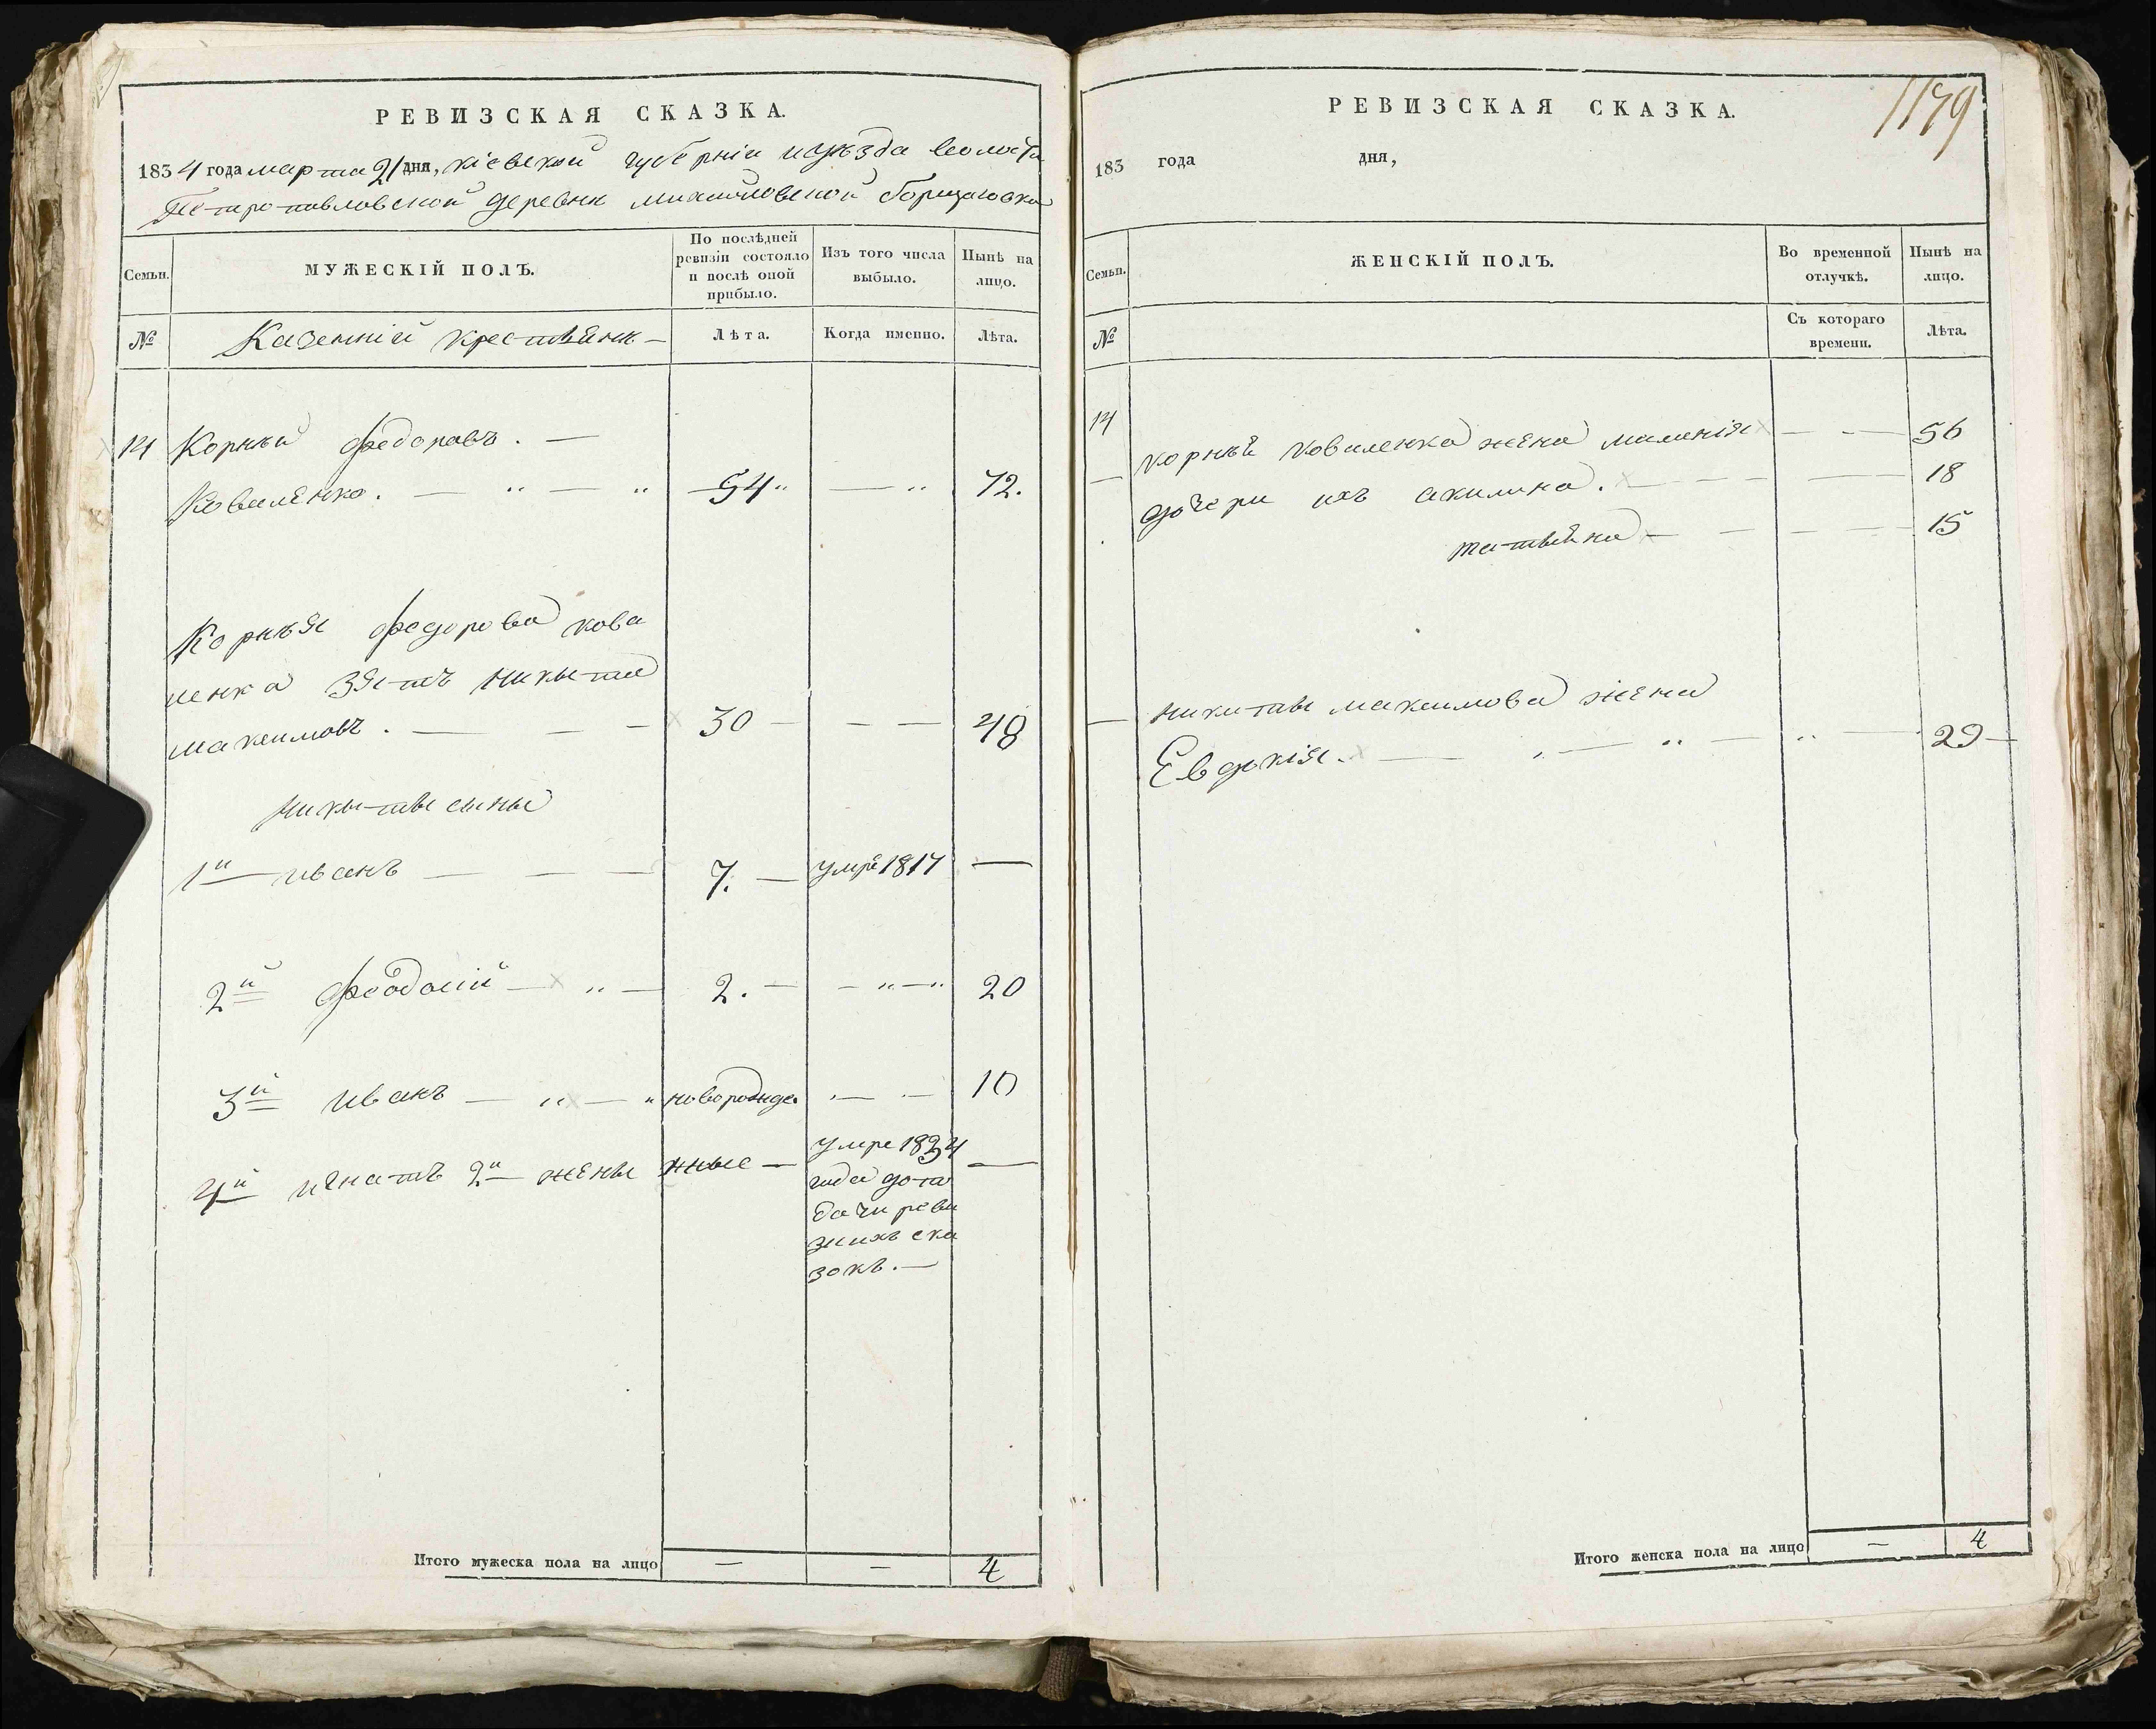 РЕВИЗСКАЯ СКАЗКА.
1834 года марта 21 дня, кіевской губерніи и уѣзда волости
Петропавловской деревни михайловской борщаговки
Семьи.
МУЖЕСКІЙ ПОЛЪ.
По послѣдней ревизіи состояло и послѣ оной прибыло.
Изъ того числа выбыло.
Нынѣ на лицо.
№
Казенніи крестьяне
Лѣта.
Когда именно.
Лѣта.
14 Корнѣй федоровъ. —
Коваленко. — „ — „ 54 „ — „ 72.
Корнѣя федорова кова
ленка зять никита
максимовъ. — — — 30 — — — 48
никиты сыны
1й иванъ — — — 7. — умре 1817 —
2й феодосій — „ — 2. — — „ — „ 20
3й иванъ — „ — „ новорожде — — 10
4й игнатъ 2й жены нные — умре 1834 —
года до по
дачи реви
зиихъ ска
зокъ. —
Итого мужеска пола на лицо — — 4
1179
РЕВИЗСКАЯ СКАЗКА.
183 года дня,
Семьи.
ЖЕНСКІЙ ПОЛЪ.
Во временной отлучкѣ.
Нынѣ на лицо.
№
Съ котораго времени.
Лѣта.
14 корнѣя коваленка жена маланія — — — 56
— дочери ихъ акилина. — — — — 18
татьяна — — — — — 15
— никиты максимова жена
Евдокія. — „ — „ — „ — 29 —
Итого женска пола на лицо — 4